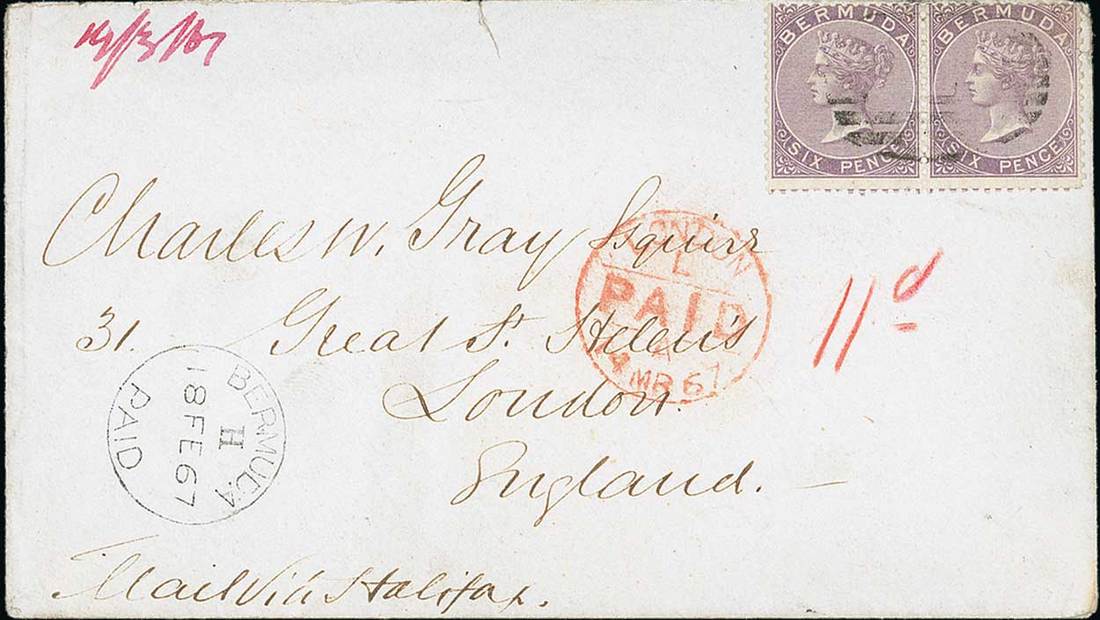 BERMUDA
SIX PENCE
BERMUDA
SIX PENCE
Charles W. Gray Esquire
31. Great St. Helen's
London.
England.
LONDON
L
PAID
MR 67
11d
BERMUDA
H
18 FE 67
PAID
Mail Via Halifax.